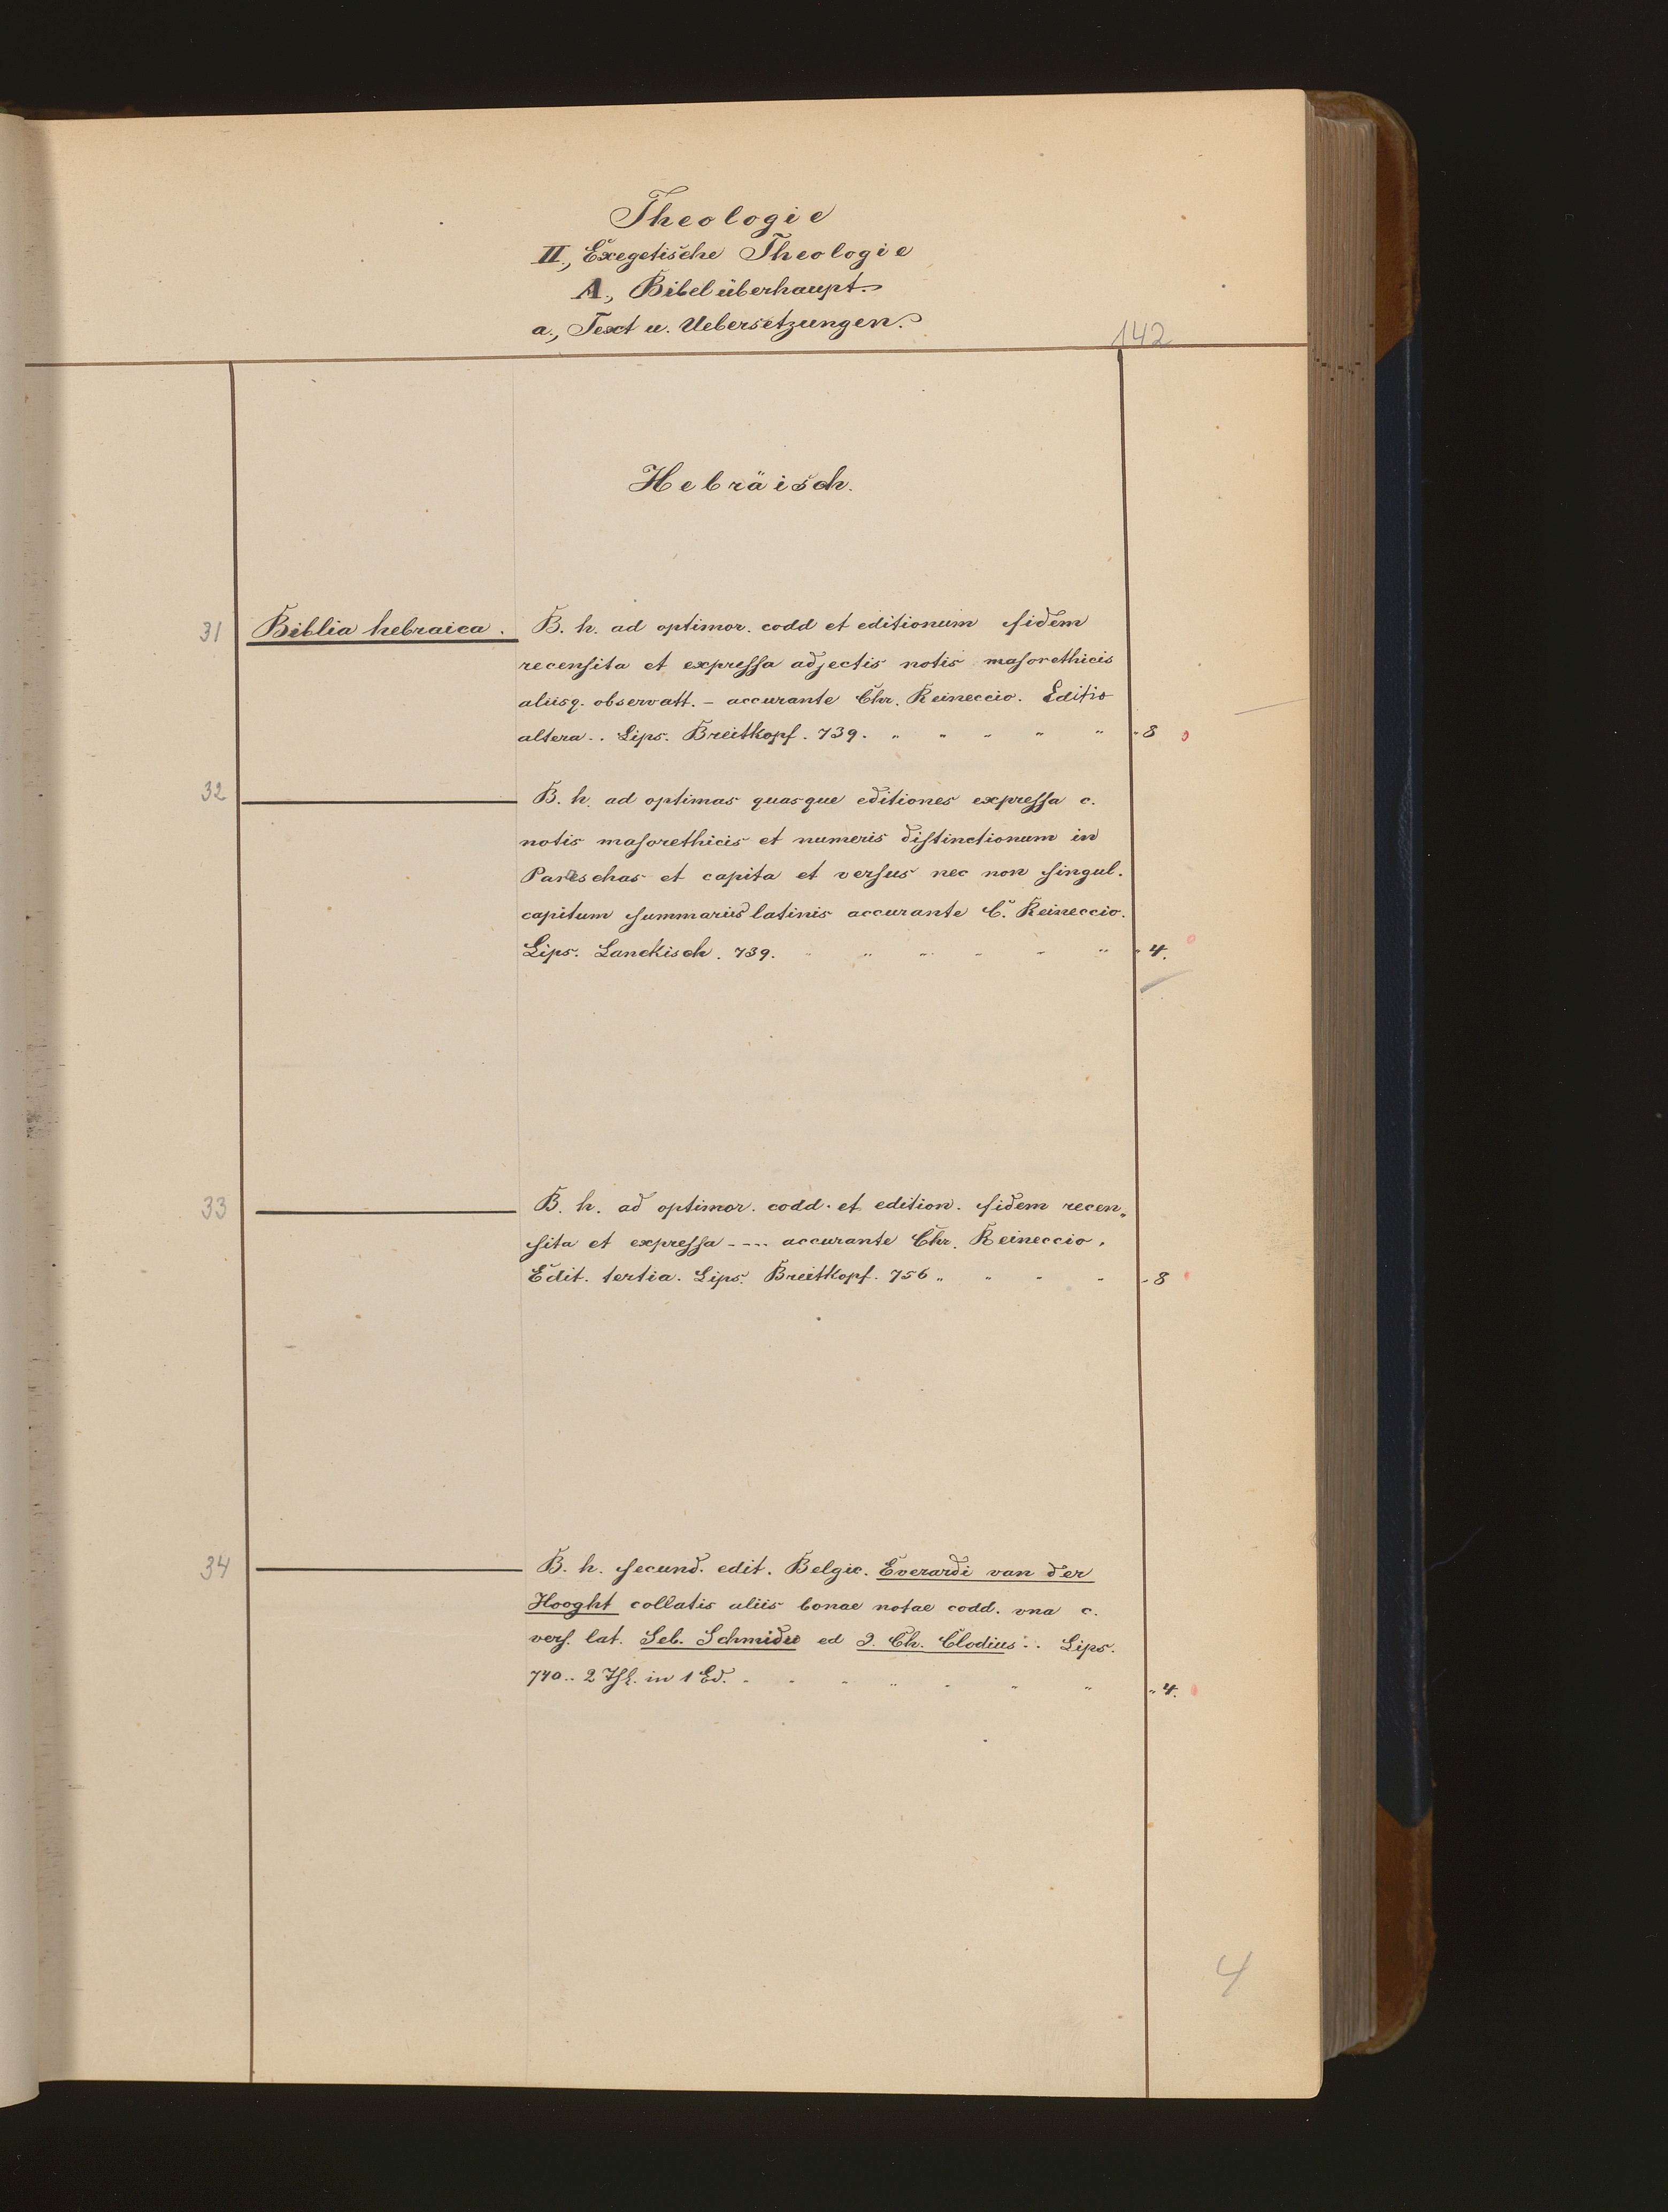 Theologie
II., Exegetische Theologie
A., Bibel überhaupt.
a., Text u. Uebersetzungen.
142
Hebräisch.
31 Biblia hebraica. B. h. ad optimor. codd et editionum fidem
recensita et expressa adjectis notis masorethicis
aliisq. observatt. – accurante Chr. Reineccio. Editio
altera.. Lips. Breitkopf. 739. " " " " " " 8 0
32 B. h. ad optimas quasque editiones expressa c.
notis masorethicis et numeris distinctionum in
Paraschas et capita et versus nec non singul.
capitum summariis latinis accurante C. Reineccio.
Lips. Lanckisch. 739. " " " " " " " 4.
33 B. h. ad optimor. codd. et edition. fidem recen„
sita et expressa ---- accurante Chr. Reineccio.
Edit. tertia. Lips. Breitkopf. 756 " " " " " 8
34 B. h. secund. edit. Belgic. Everardi van der
Hooght collatis aliis bonae notae codd. vna c.
vers. lat. Seb. Schmidii ed J. Ch. Clodius.. Lips.
740.. 2 Thl. in 1 Bd. " " " " " " " " 4.
4